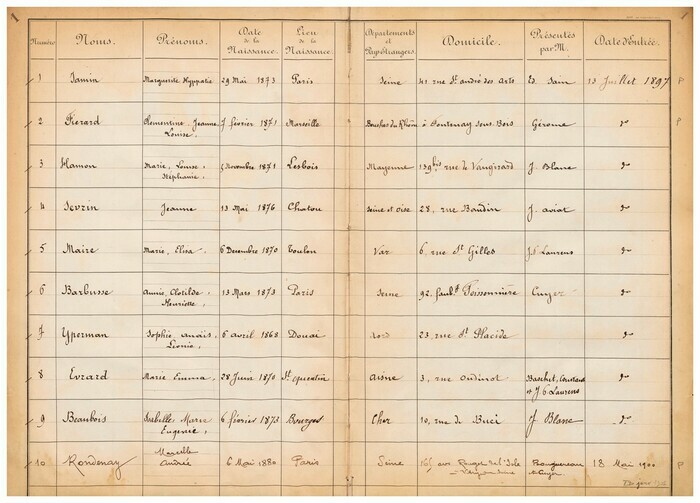 Numéro Noms. Prénoms. Date de la Naissance. Lieu de la Naissance. Départements et Pays étrangers. Domicile. Présentés par M. Date d'Entrée.
1 Jamin Marguerite Hyppatie 29 Mai 1873 Paris Seine 41 rue St andré des Arts Ed. Sain 13 Juillet 1897
2 Fierard Clementine Jeanne Louise. 7 février 1871 Marseille Bouches du Rhône à Fontenay sous Bois Gérome do
3 Hamon Marie, Louise, Stéphanie. 5 Novembre 1871 Lesbois Mayenne 139 bis rue de Vaugirard J. Blanc do
4 Sevrin Jeanne 13 Mai 1876 Chatou Seine et Oise 28, rue Baudin J. aviat do
5 Maire Marie, Elisa, 6 Decembre 1870 Toulon Var 6, rue St Gilles J. P. Laurens do
6 Barbusse Annie, Clotilde, Henriette, 13 Mars 1873 Paris Seine 92, faubg Poissonnière Cuyer do
7 Yperman Sophie anaïs Léonie, 6 avril 1868 Douai Nord 23, rue St Placide do
8 Evrard Marie Emma 28 Juin 1870 St quentin Aisne 3, rue oudinot Baschet, Constant et J. P. Laurens do
9 Beaubois Isabelle Marie Eugenie, 6 février 1873 Bourges Cher 10, rue de Buci J. Blanc do
10 Rondenay Marcelle Andrée 6 Mai 1880 Paris Seine rue Rouget de l'Isle Bouguereau et Cuyer 18 Mai 1900